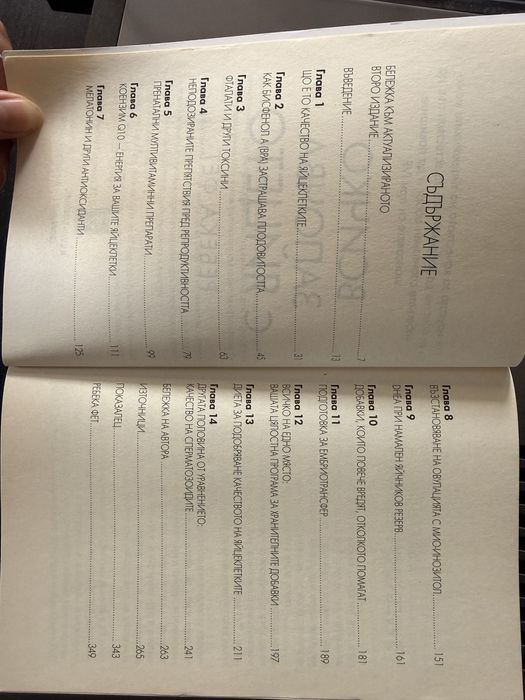 СЪДЪРЖАНИЕ
БЕЛЕЖКА КЪМ АКТУАЛИЗИРАНОТО
ВТОРО ИЗДАНИЕ 7
ВЪВЕДЕНИЕ 13
Глава 1
ЩО Е ТО КАЧЕСТВО НА ЯЙЦЕКЛЕТКИТЕ 31
Глава 2
КАК БИСФЕНОЛ А (BPA) ЗАСТРАШАВА ПЛОДОВИТОСТТА 45
Глава 3
ФТАЛАТИ И ДРУГИ ТОКСИНИ 63
Глава 4
НЕПОДОЗИРАНИТЕ ПРЕПЯТСТВИЯ ПРЕД РЕПРОДУКТИВНОСТТА 79
Глава 5
ПРЕНАТАЛНИ МУЛТИВИТАМИННИ ПРЕПАРАТИ 99
Глава 6
КОЕНЗИМ Q10 — ЕНЕРГИЯ ЗА ВАШИТЕ ЯЙЦЕКЛЕТКИ 111
Глава 7
МЕЛАТОНИН И ДРУГИ АНТИОКСИДАНТИ 125
Глава 8
ВЪЗСТАНОВЯВАНЕ НА ОВУЛАЦИЯТА С МИО-ИНОЗИТОЛ 151
Глава 9
DHEA ПРИ НАМАЛЕН ЯЙЧНИКОВ РЕЗЕРВ 161
Глава 10
ДОБАВКИ, КОИТО ПОВЕЧЕ ВРЕДЯТ, ОТКОЛКОТО ПОМАГАТ 181
Глава 11
ПОДГОТОВКА ЗА ЕМБРИОТРАНСФЕР 189
Глава 12
ВСИЧКО НА ЕДНО МЯСТО:
ВАШАТА ЦЯЛОСТНА ПРОГРАМА ЗА ХРАНИТЕЛНИТЕ ДОБАВКИ 197
Глава 13
ДИЕТА ЗА ПОДОБРЯВАНЕ КАЧЕСТВОТО НА ЯЙЦЕКЛЕТКИТЕ 211
Глава 14
ДРУГАТА ПОЛОВИНА ОТ УРАВНЕНИЕТО:
КАЧЕСТВО НА СПЕРМАТОЗОИДИТЕ 241
БЕЛЕЖКА НА АВТОРА 263
ИЗТОЧНИЦИ 265
ПОКАЗАЛЕЦ 343
РЕБЕКА ФЕТ 349